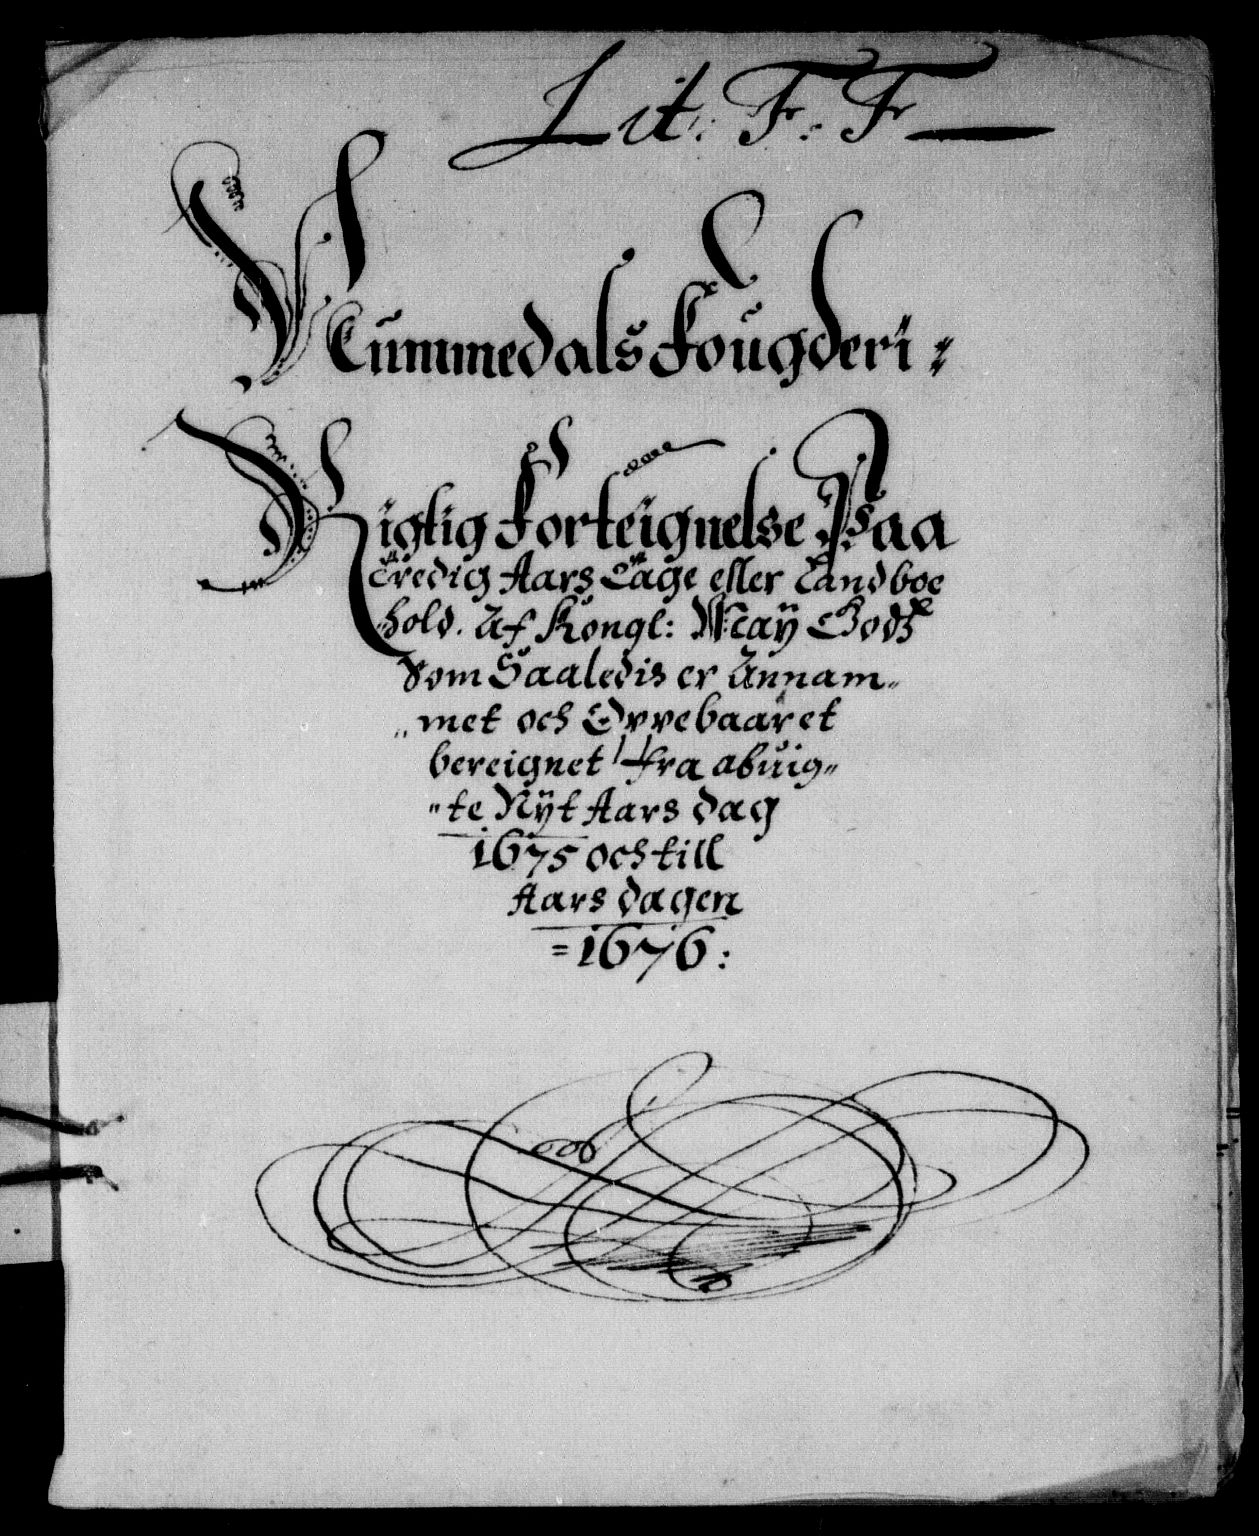 Lit: F: F
Nummedals Fougderi
Rigtig Forteignelse Paa
Tredig Aars Tage eller Landboe
hold. Af Kongl: May Godtz
Som Saaledis er Annam-
met och Opebaaret
bereignet Fra abuig-
te Nyt Aars dag
1675 och till
Aars dagen
1676: